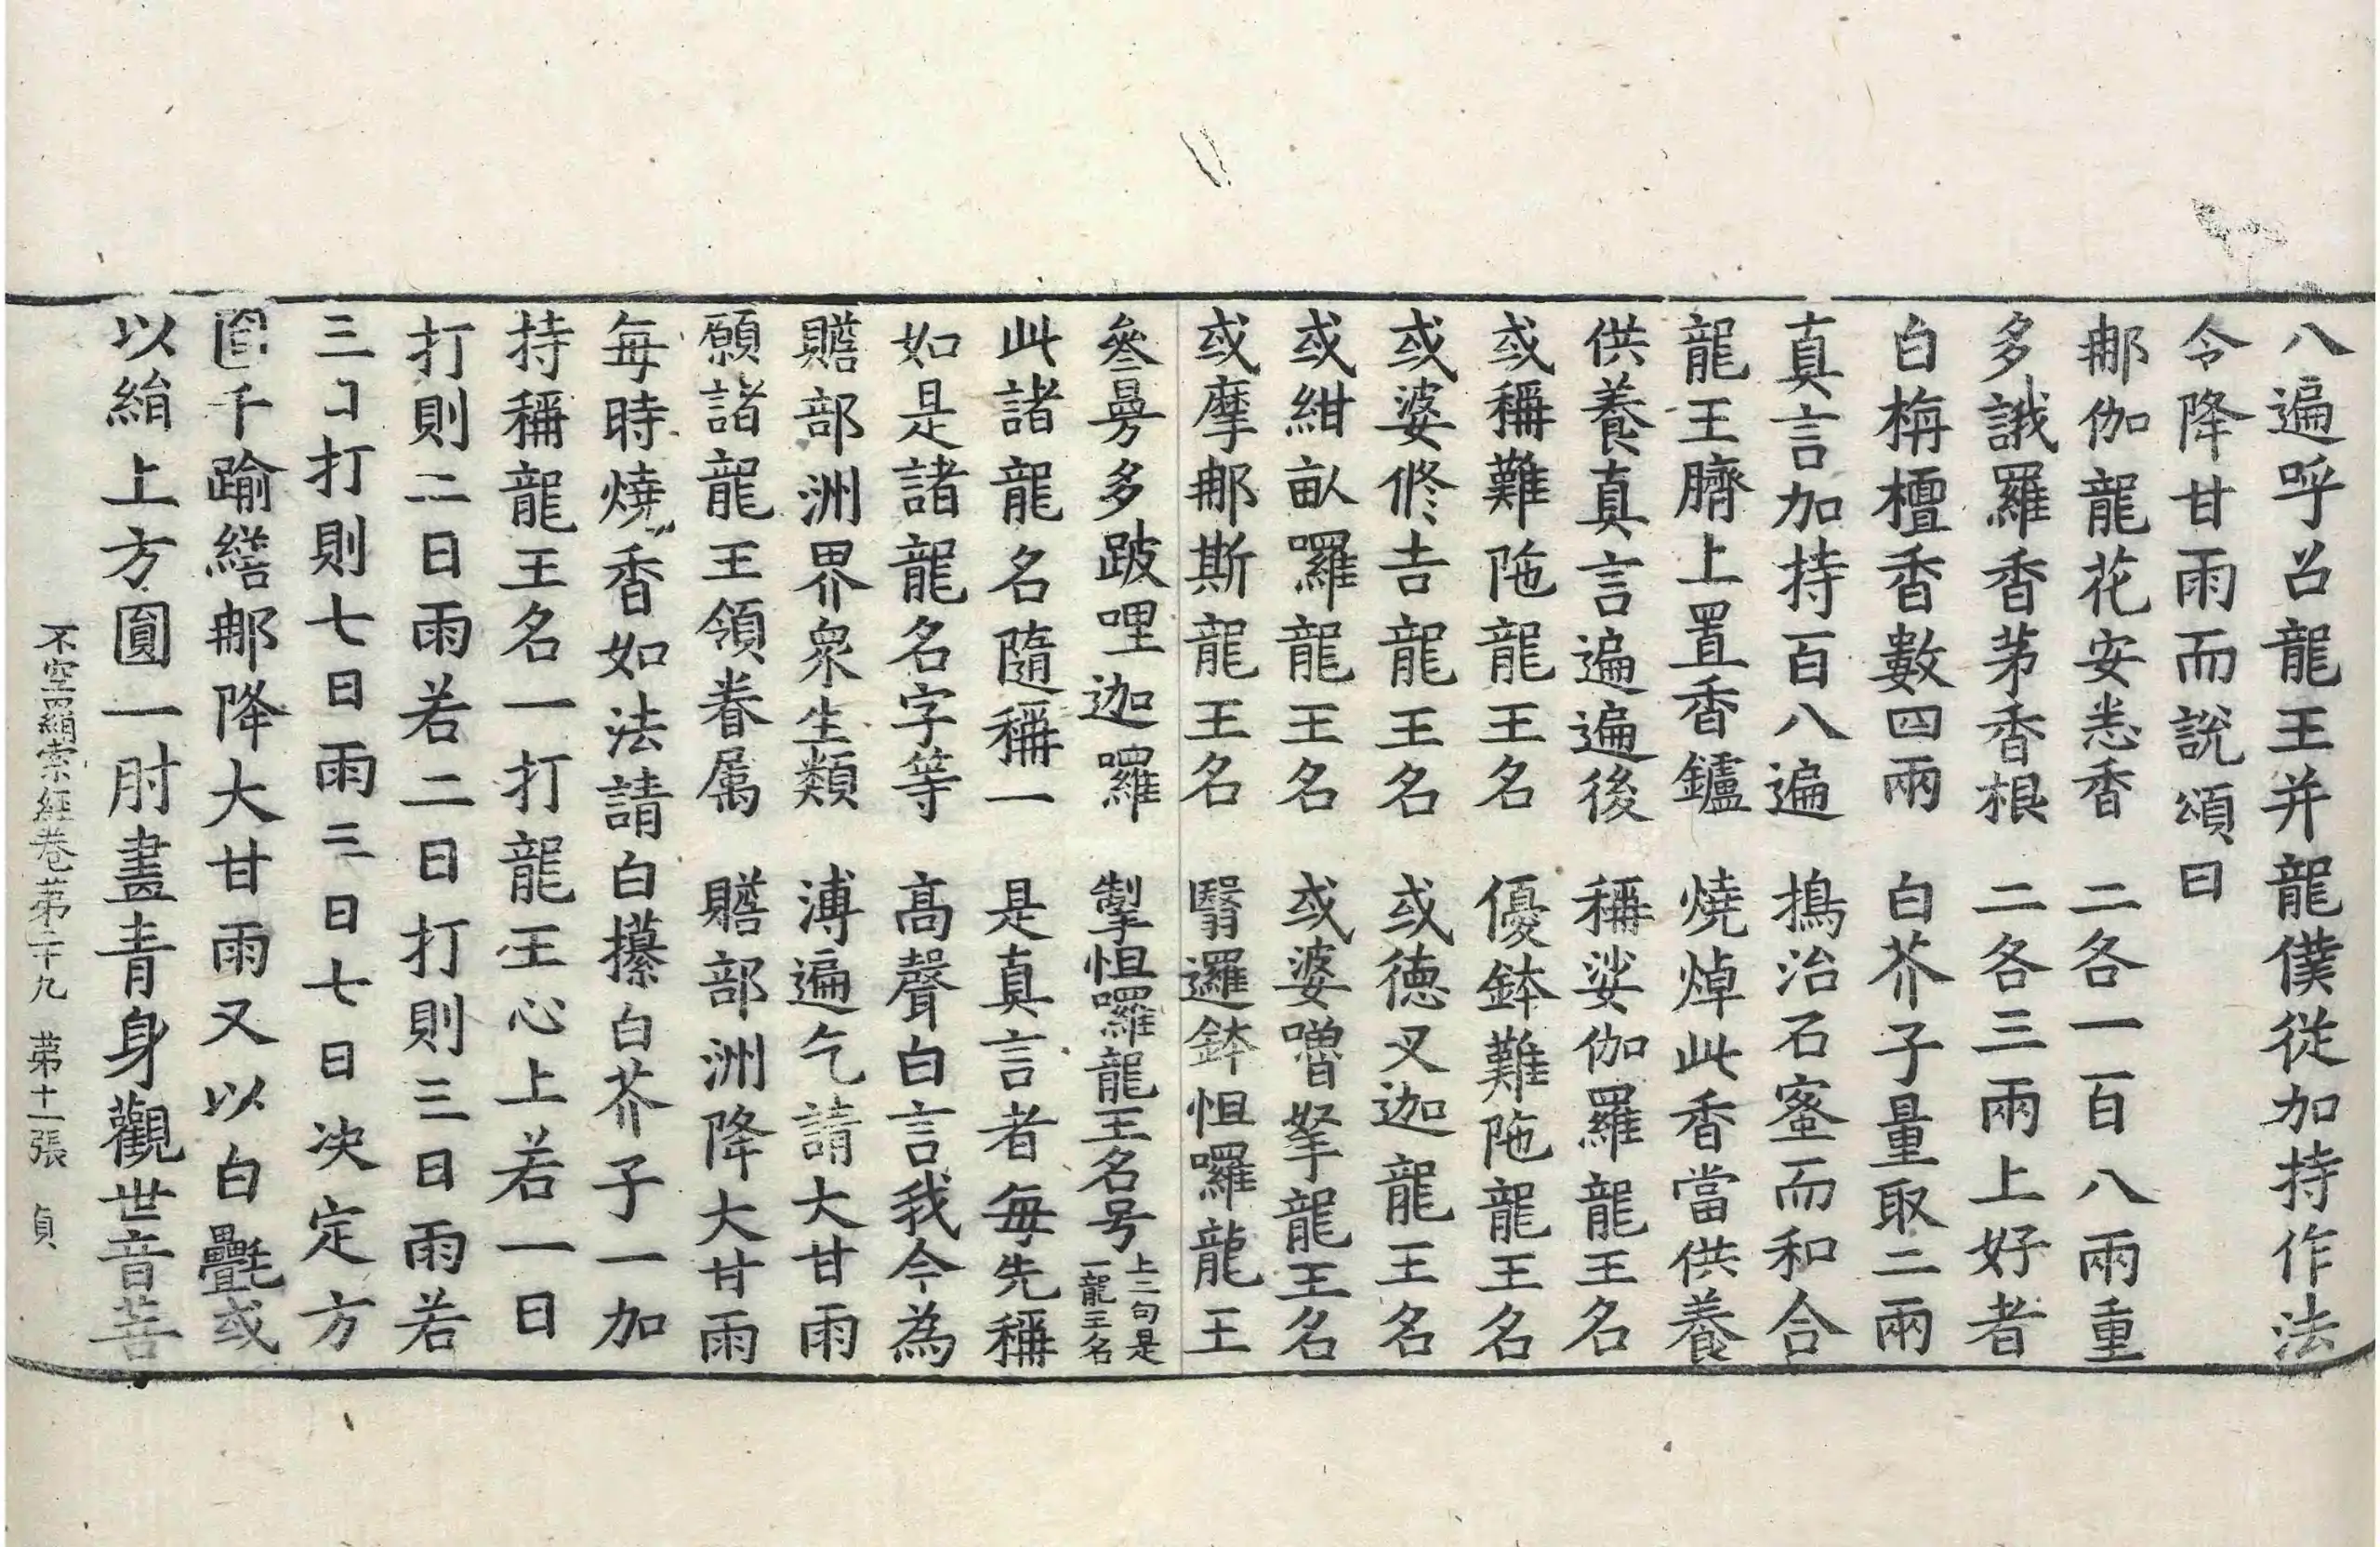 八遍呼召龍王并龍僕從加持作法
令降甘雨而說頌曰
那伽龍花安悉香　二各一百八兩重
多誐羅香茅香根　二各三兩上好者
白栴檀香數四兩　白芥子量取二兩
真言加持百八遍　擣治石蜜而和合
龍王臍上置香鑪　燒焯此香當供養
供養真言遍遍後　稱娑伽羅龍王名
或稱難陁龍王名　優鉢難陁龍王名
或婆修吉龍王名　或德叉迦龍王名
或紺畝囉龍王名　或婆嚕拏龍王名
或摩那斯龍王名　翳邏鉢怛囉龍王
叄曼多跛哩迦囉　掣怛囉龍王名号上二句是一龍王名
此諸龍名隨稱一　是真言者每先稱
如是諸龍名字等　高聲白言我今為
贍部洲界衆生類　溥遍乞請大甘雨
願諸龍王領眷属　贍部洲降大甘雨
每時燒香如法請白攥白芥子一加
持稱龍王名一打龍王心上若一日
打則二日雨若二日打則三日雨若
三日打則七日雨三日七日決定方
圓千踰繕那降大甘雨又以白㲲或
以絹上方圓一肘畫青身觀世音菩
不空羂索經卷第十九　第十一張　貞